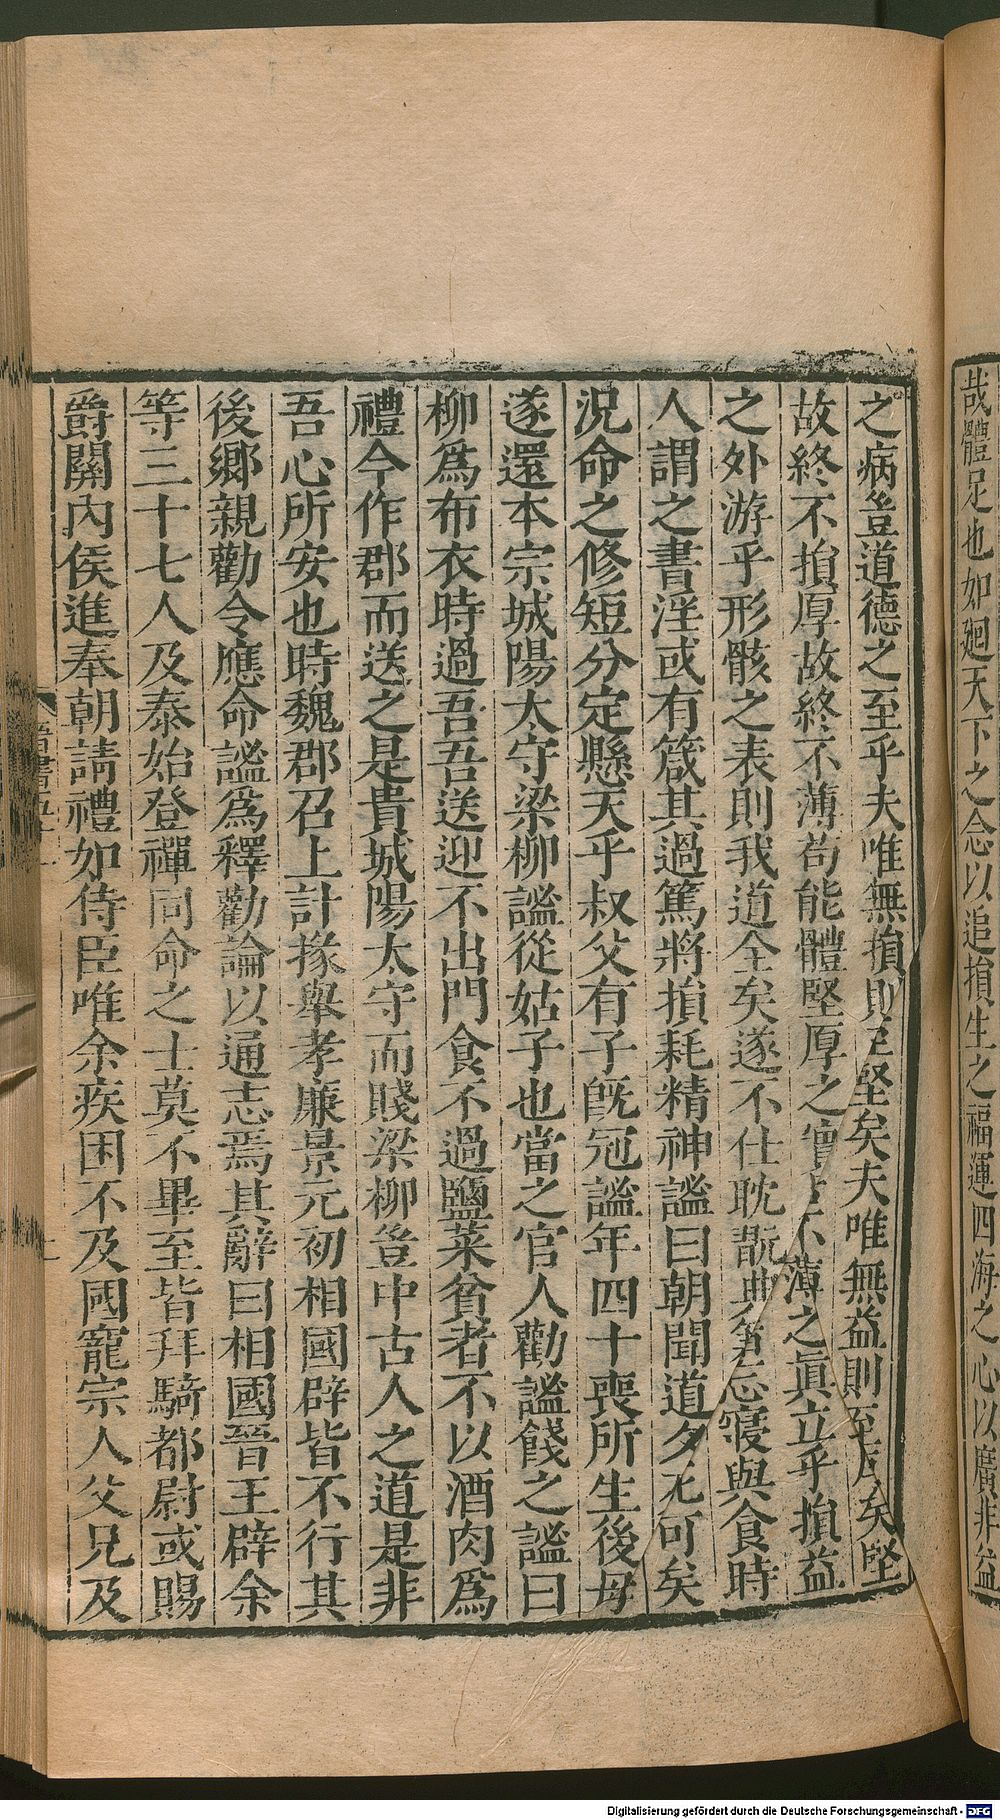 哉體足也如廻天下之念以追損生之福運四海之心以廣非益
之病豈道德之至乎夫唯無損則至堅矣夫唯無益則至厚矣堅
故終不損厚故終不薄苟能體堅厚之實居不薄之真立乎損益
之外游乎形骸之表則我道全矣遂不仕耽翫典籍忘寢與食時
人謂之書淫或有箴其過篤將損耗精神謐曰朝聞道夕死可矣
況命之修短分定懸天乎叔父有子旣冠謐年四十喪所生後母
遂還本宗城陽太守梁柳謐從姑子也當之官人勸謐餞之謐曰
柳爲布衣時過吾吾送迎不出門食不過鹽菜貧者不以酒肉爲
禮今作郡而送之是貴城陽太守而賤梁柳豈中古人之道是非
吾心所安也時魏郡召上計掾舉孝廉景元初相國辟皆不行其
後鄉親勸令應命謐爲釋勸論以通志焉其辭曰相國晉王辟余
等三十七人及泰始登禪同命之士莫不畢至皆拜騎都尉或賜
爵關內侯進奉朝請禮如侍臣唯余疾困不及國寵宗人父兄及
Digitalisierung gefördert durch die Deutsche Forschungsgemeinschaft - DFG